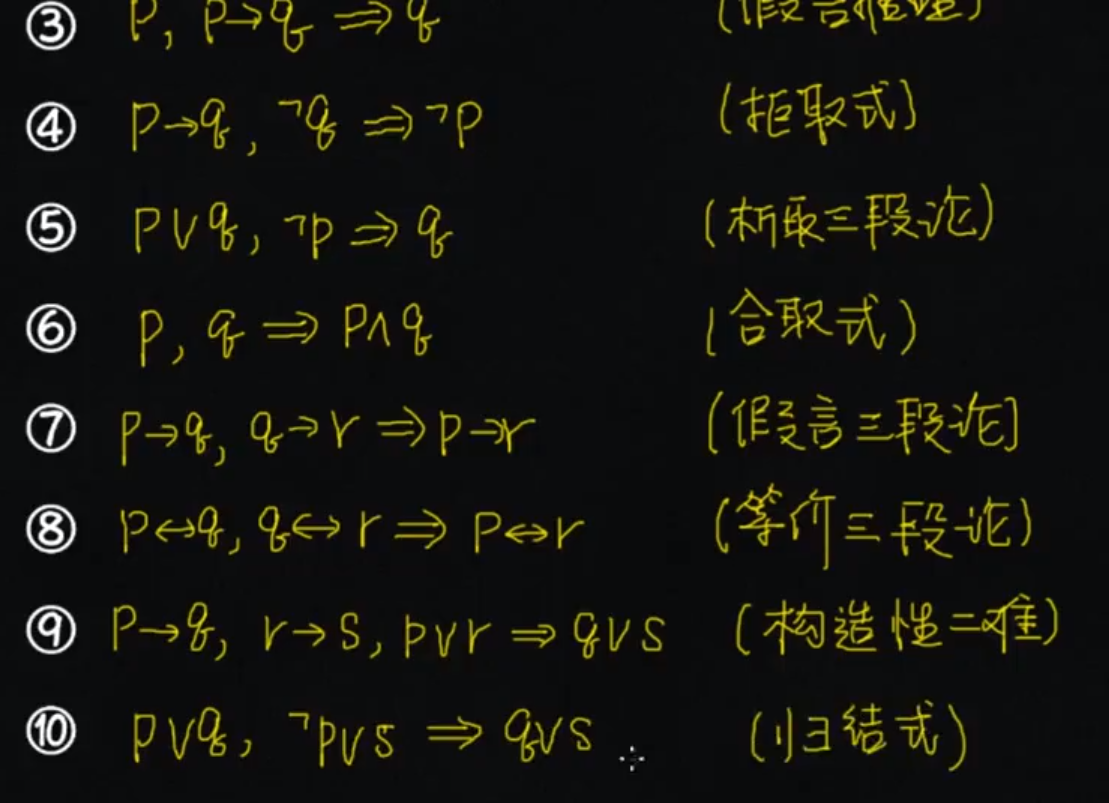 ③ P, P→q ⇒ q (假言推理)
④ P→q, ¬q ⇒ ¬P (拒取式)
⑤ P∨q, ¬p ⇒ q (析取三段论)
⑥ P, q ⇒ P∧q (合取式)
⑦ P→q, q→r ⇒ p→r (假言三段论]
⑧ P↔q, q↔r ⇒ P↔r (等价三段论)
⑨ P→q, r→s, p∨r ⇒ q∨s (构造性二难)
⑩ P∨q, ¬p∨s ⇒ q∨s (归结式)